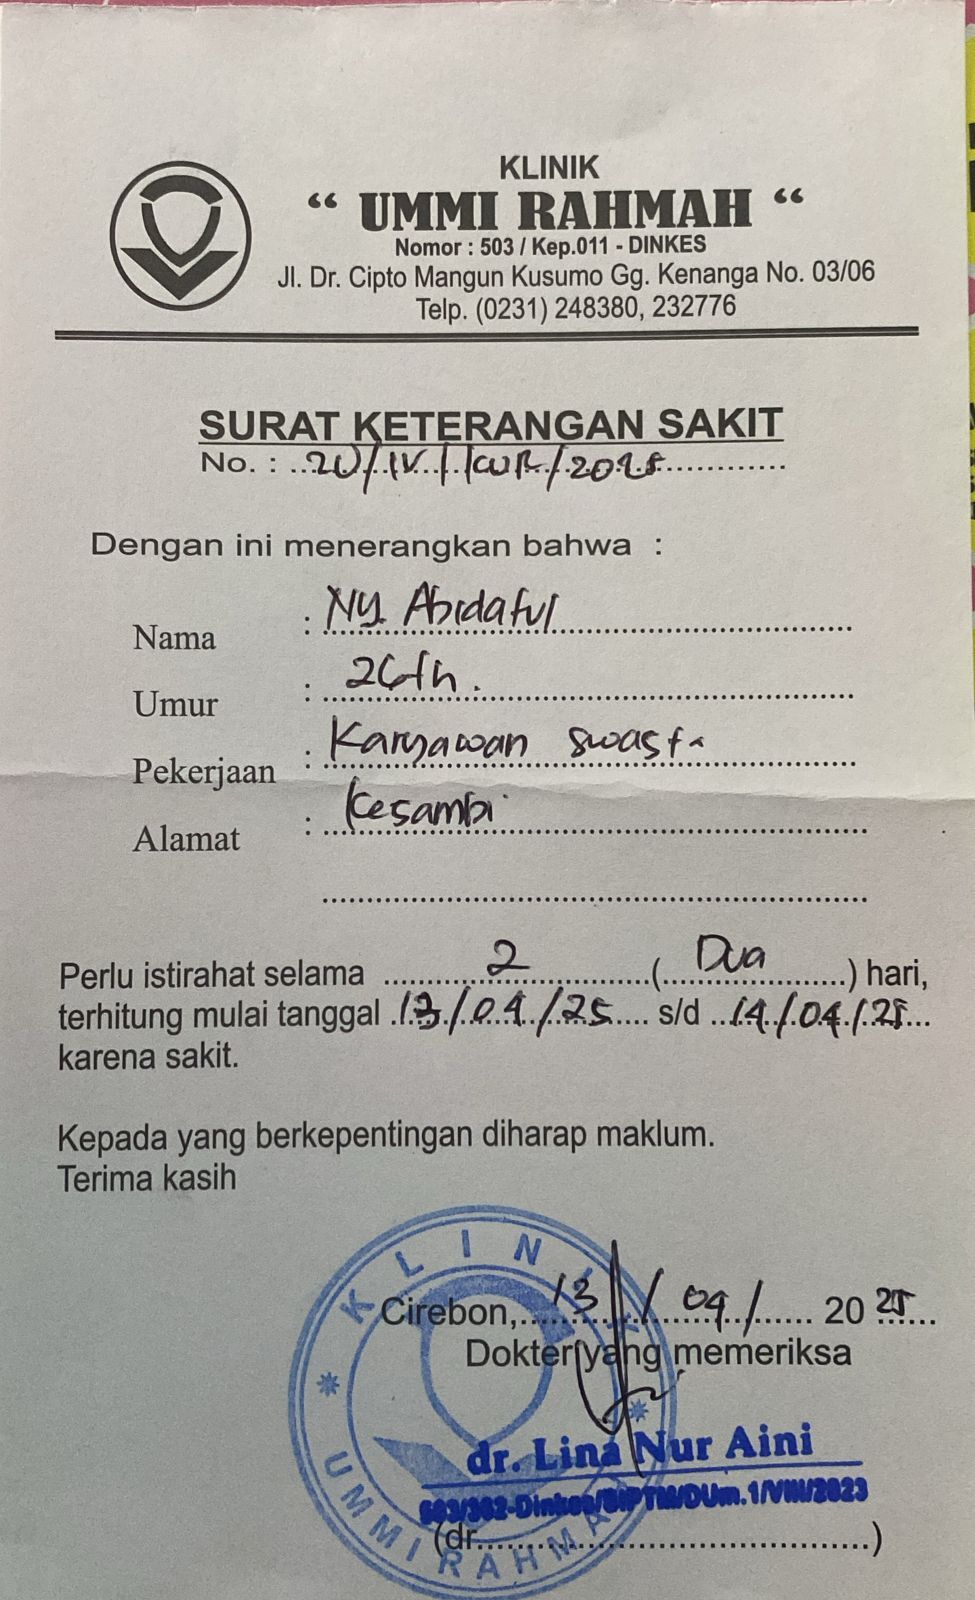 KLINIK
“ UMMI RAHMAH “
Nomor : 503 / Kep.011 - DINKES
Jl. Dr. Cipto Mangun Kusumo Gg. Kenanga No. 03/06
Telp. (0231) 248380, 232776
SURAT KETERANGAN SAKIT
No. : 20/IV/KUR/2025
Dengan ini menerangkan bahwa :
Nama : Ny. Abidatul
Umur : 26 th.
Pekerjaan : Karyawan swasta
Alamat : Kesambi
Perlu istirahat selama 2 (Dua) hari,
terhitung mulai tanggal 13/04/25 s/d 14/04/25
karena sakit.
Kepada yang berkepentingan diharap maklum.
Terima kasih
Cirebon, 13/04/ 2025
Dokter yang memeriksa
dr. Lina Nur Aini
503/302-Dinkes/SIPTM/DUm.1/VIII/2023
(dr. )
KLINIK
UMMI RAHMAH